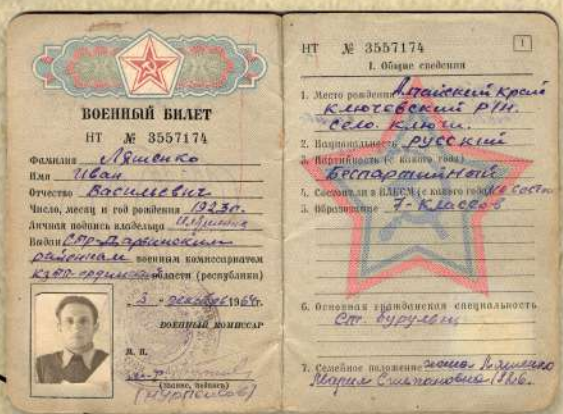 ВОЕННЫЙ БИЛЕТ
НТ № 3557174
Фамилия Ляшенко
Имя Иван
Отчество Васильевич
Число, месяц и год рождения 1923г.
Личная подпись владельца
Выдан
районным военным комиссариатом
области (республики)
"3" декабря 1964г.
ВОЕННЫЙ КОМИССАР
М. П.
(звание, подпись)
НТ № 3557174
1
I. Общие сведения
1. Место рождения Алтайский край
Ключевский р/н.
село. Ключи.
2. Национальность русский
3. Партийность (с какого года)
Беспартийный
4. Состоял ли в ВЛКСМ (с какого года) не состоял
5. Образование 7-классов
6. Основная гражданская специальность
Ст.
7. Семейное положение жена Ляшенко
Мария Степановна